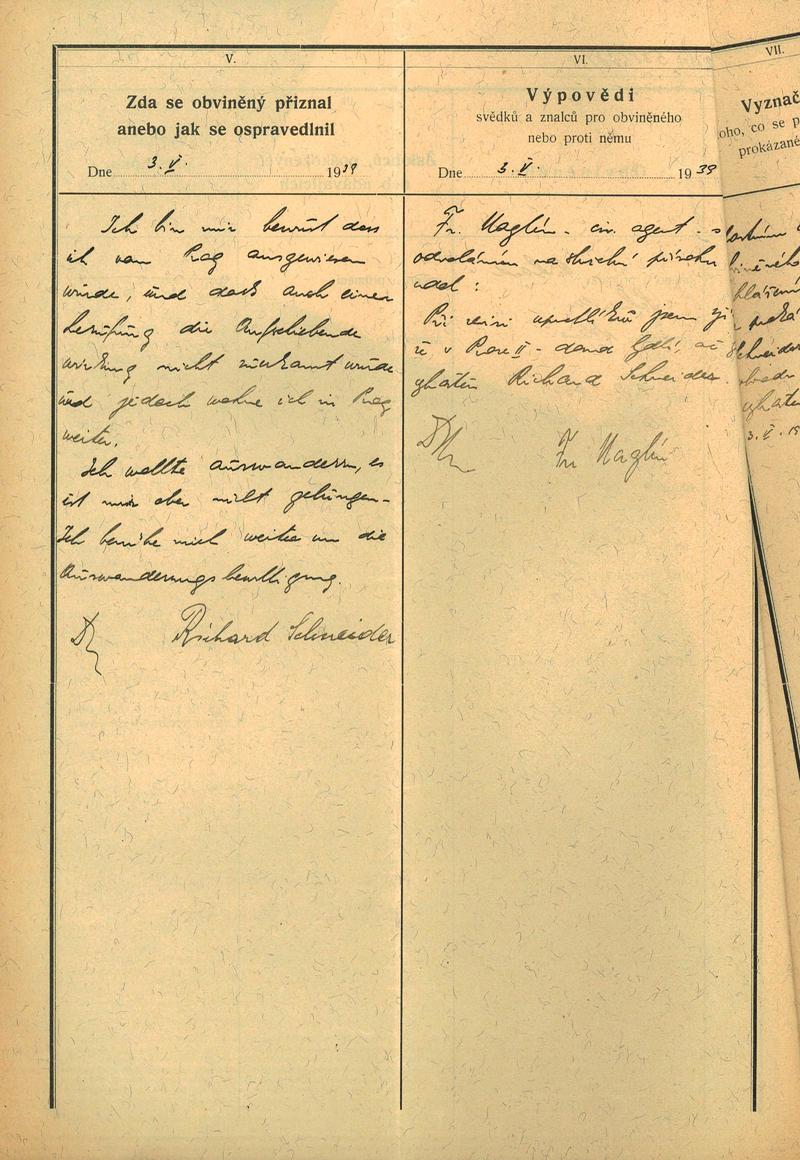 V.
Zda se obviněný přiznal
anebo jak se ospravedlnil
Dne 3. V. 1939
Ich bin mir bewust dass
ich von Prag ausgewiesen
wurde, und dass auch einer
Berufung die Aufschiebende
wirkung nicht zuerkannt wurde
und jedoch wohne ich in Prag
weiter.
Ich wollte auswandern, es
ist mir aber nicht gelungen -
Ich bemühe mich weiter um die
Auswanderungsbewilligung.
Richard Schneider
VI.
Výpovědi
svědků a znalců pro obviněného
nebo proti němu
Dne 3. V. 1939
Fr. Maglín - civ. agent - s
odvoláním na služební přísahu
udal:
Při revisi uprchlíků jsem zji
že v Praze II -
Richard Schneider.
Fr Maglín
VII.
Vyznač
oho, co se p
prokázané
3. V. 19